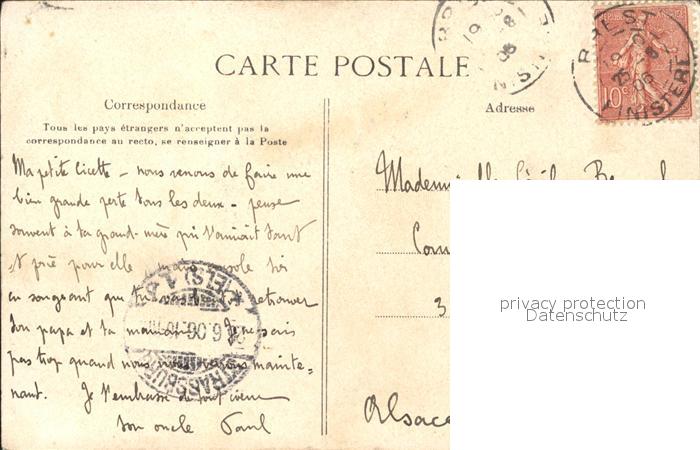 CARTE POSTALE
Correspondance
Tous les pays étrangers n'acceptent pas la
correspondance au recto, se renseigner à la Poste
Adresse
BREST
FINISTERE
10c
Ma petite Cicette - nous venons de faire une
bien grande perte tous les deux - pense
souvent à ta grand-mère qui t'aimait tant
et prie pour elle mais console toi
en songeant que tu retrouver
ton papa et ta maman. Je ne sais
pas trop quand nous nous reverrons mainte=
nant. Je t'embrasse de tout coeur
ton oncle Paul
STRASSBURG (ELS) 1
Com
3
Alsace
privacy protection
Datenschutz